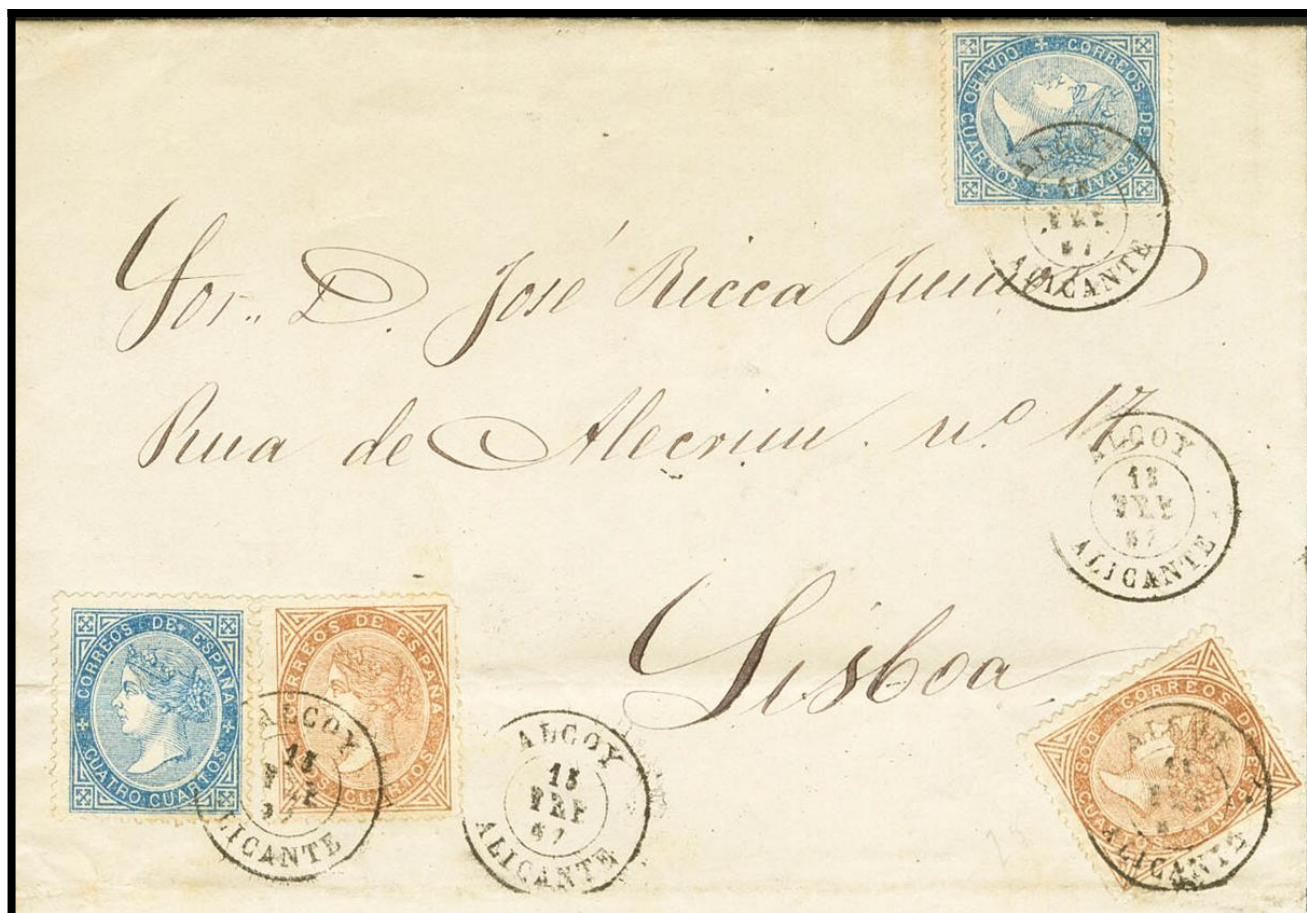 CORREOS DE ESPAÑA
CUATRO CUARTOS
ALCOY
ALICANTE
Sor. D. José Ricca Junior
Rua de Alecrim. nº 17
ALCOY
15
FEB
67
ALICANTE
Lisboa
CORREOS DE ESPAÑA
CUATRO CUARTOS
CORREOS DE ESPAÑA
DOS CUARTOS
ALCOY
15
ALICANTE
ALCOY
15
FEB
67
ALICANTE
CORREOS DE ESPAÑA
DOS CUARTOS
ALCOY
ALICANTE